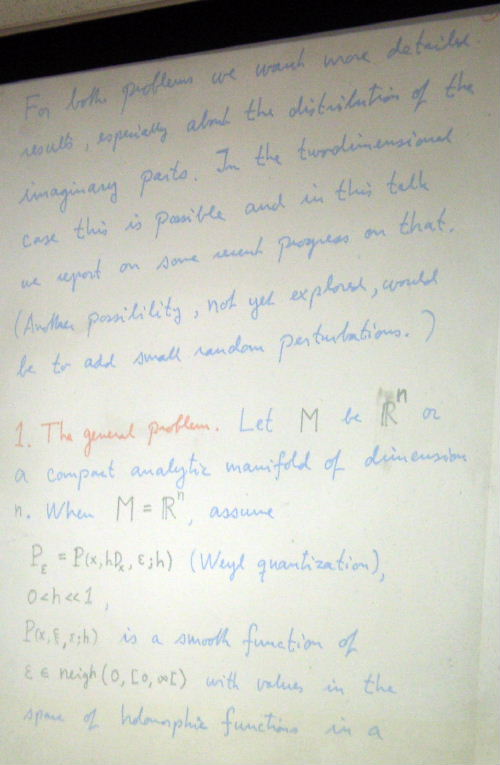 For both problems we want more detailed
results, especially about the distribution of the
imaginary parts. In the twodimensional
case this is possible and in this talk
we report on some recent progress on that.
(Another possibility, not yet explored, would
be to add small random perturbations.)
1. The general problem. Let M be ℝⁿ or
a compact analytic manifold of dimension
n. When M = ℝⁿ, assume
P_ε = P(x,hD_x,ε;h) (Weyl quantization),
0<h<<1,
P(x,ξ,ε;h) is a smooth function of
ε ∈ neigh(0,[0,∞[) with values in the
space of holomorphic functions in a